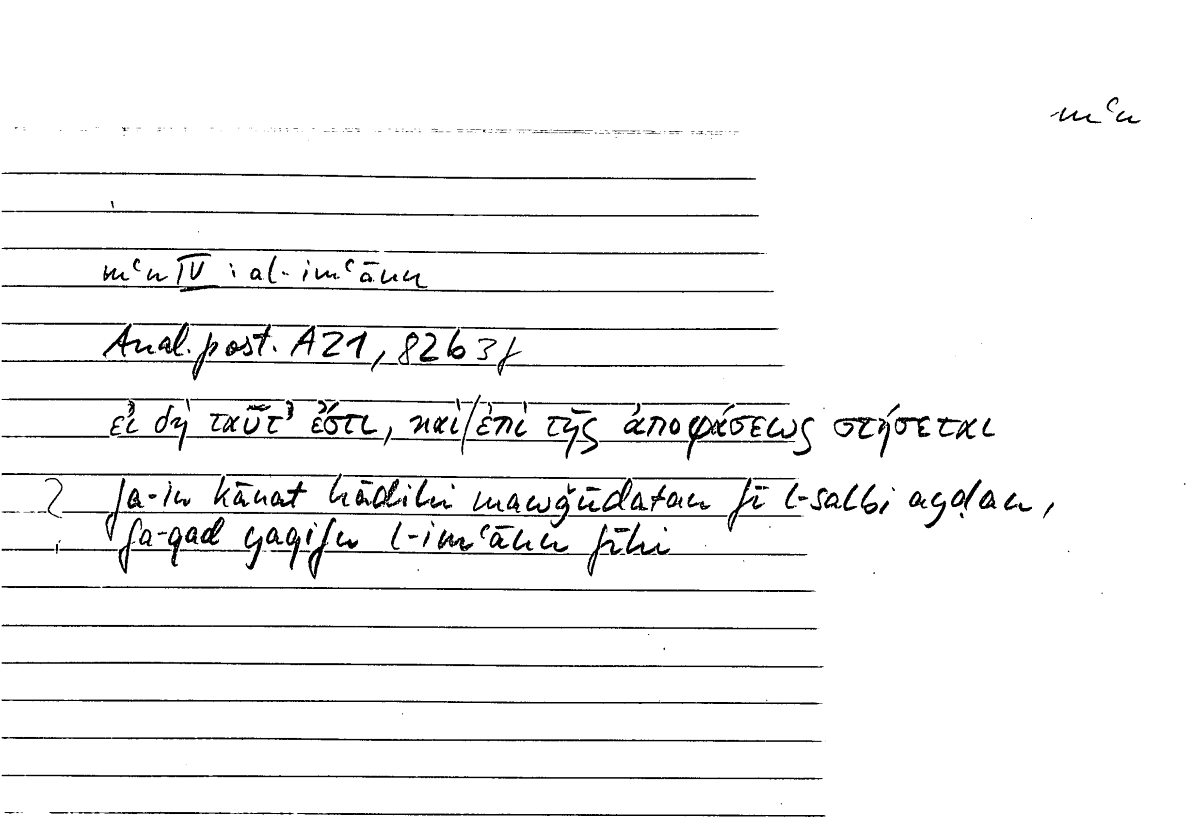 mʿn
mʿn IV : al-imʿānu
Anal. post. A21, 82b3f
εἰ δὴ ταῦτ’ ἔστι, καὶ/ἐπὶ τῆς ἀποφάσεως στήσεται
fa-in kānat hāḏihi mawǧūdatan fī l-salbi ayḍan,
fa-qad yaqifu l-imʿānu fīhi